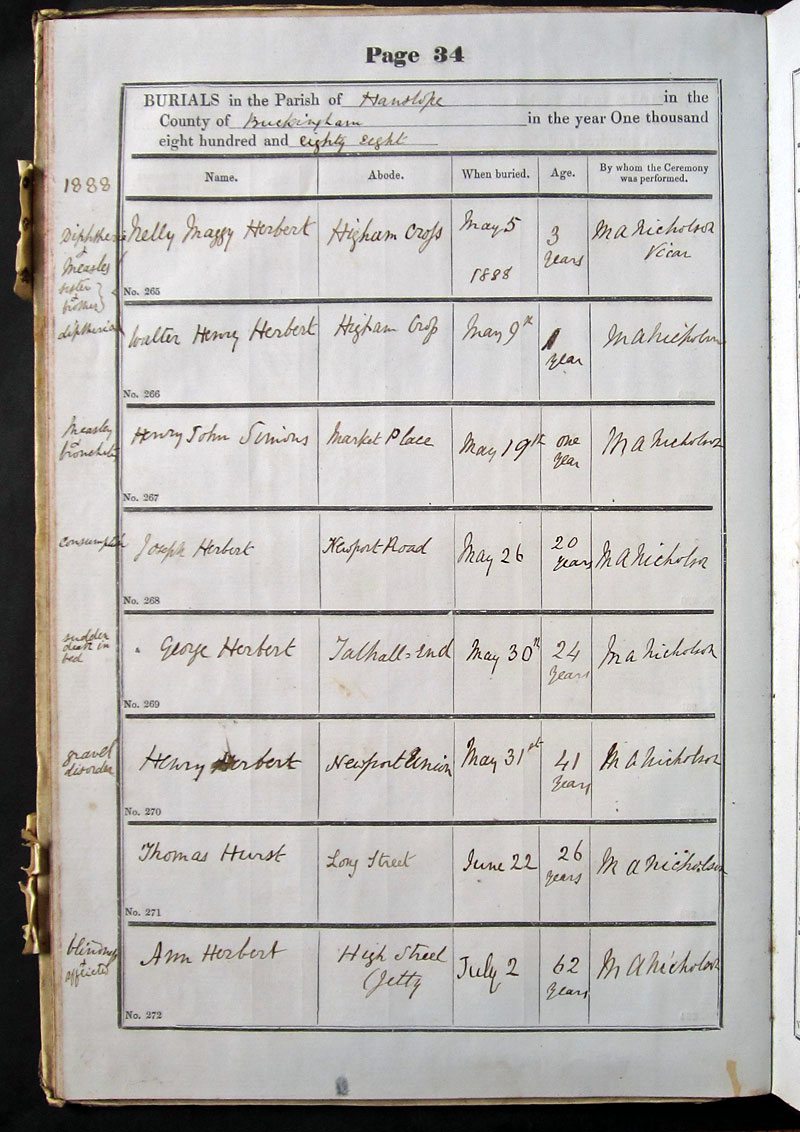 Page 34
BURIALS in the Parish of Hanslope in the
County of Buckingham in the year One thousand
eight hundred and eighty eight
1888
Name. Abode. When buried. Age. By whom the Ceremony was performed.
Diphtheria
&
Measles
sister
&
brother
Nelly Maggy Herbert Higham Cross May 5 3 M A Nicholson
1888 years Vicar
No. 265
diphtheria Walter Henry Herbert Higham Cross May 9th 1 M A Nicholson
year
No. 266
Measles Henry John Simons Market Place May 19th one M A Nicholson
& bronchitis year
No. 267
consumption Joseph Herbert Newport Road May 26 20 M A Nicholson
years
No. 268
sudden
death in
bed
George Herbert Tathall=End May 30th 24 M A Nicholson
years
No. 269
gravel
disorder
Henry Herbert Newport Union May 31st 41 M A Nicholson
years
No. 270
Thomas Hurst Long Street June 22 26 M A Nicholson
years
No. 271
blindness
&
afflicted
Ann Herbert High Street July 2 62 M A Nicholson
(Jetty years
No. 272